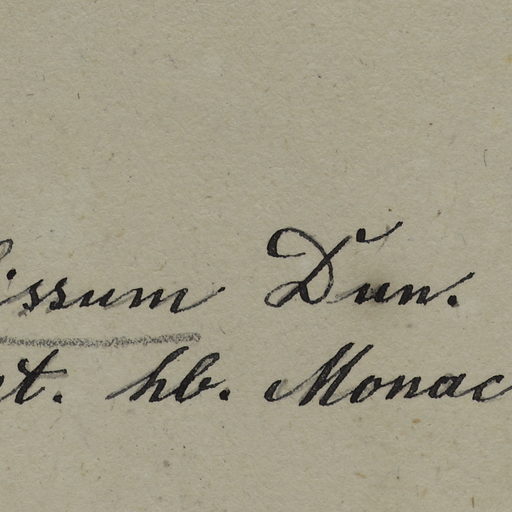 issum Dun.
t. hb. Monac